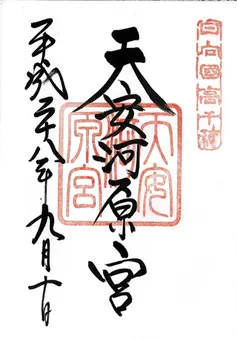 日向國高千穂
天安河原宮
天安河原宮
平成二十八年九月十日